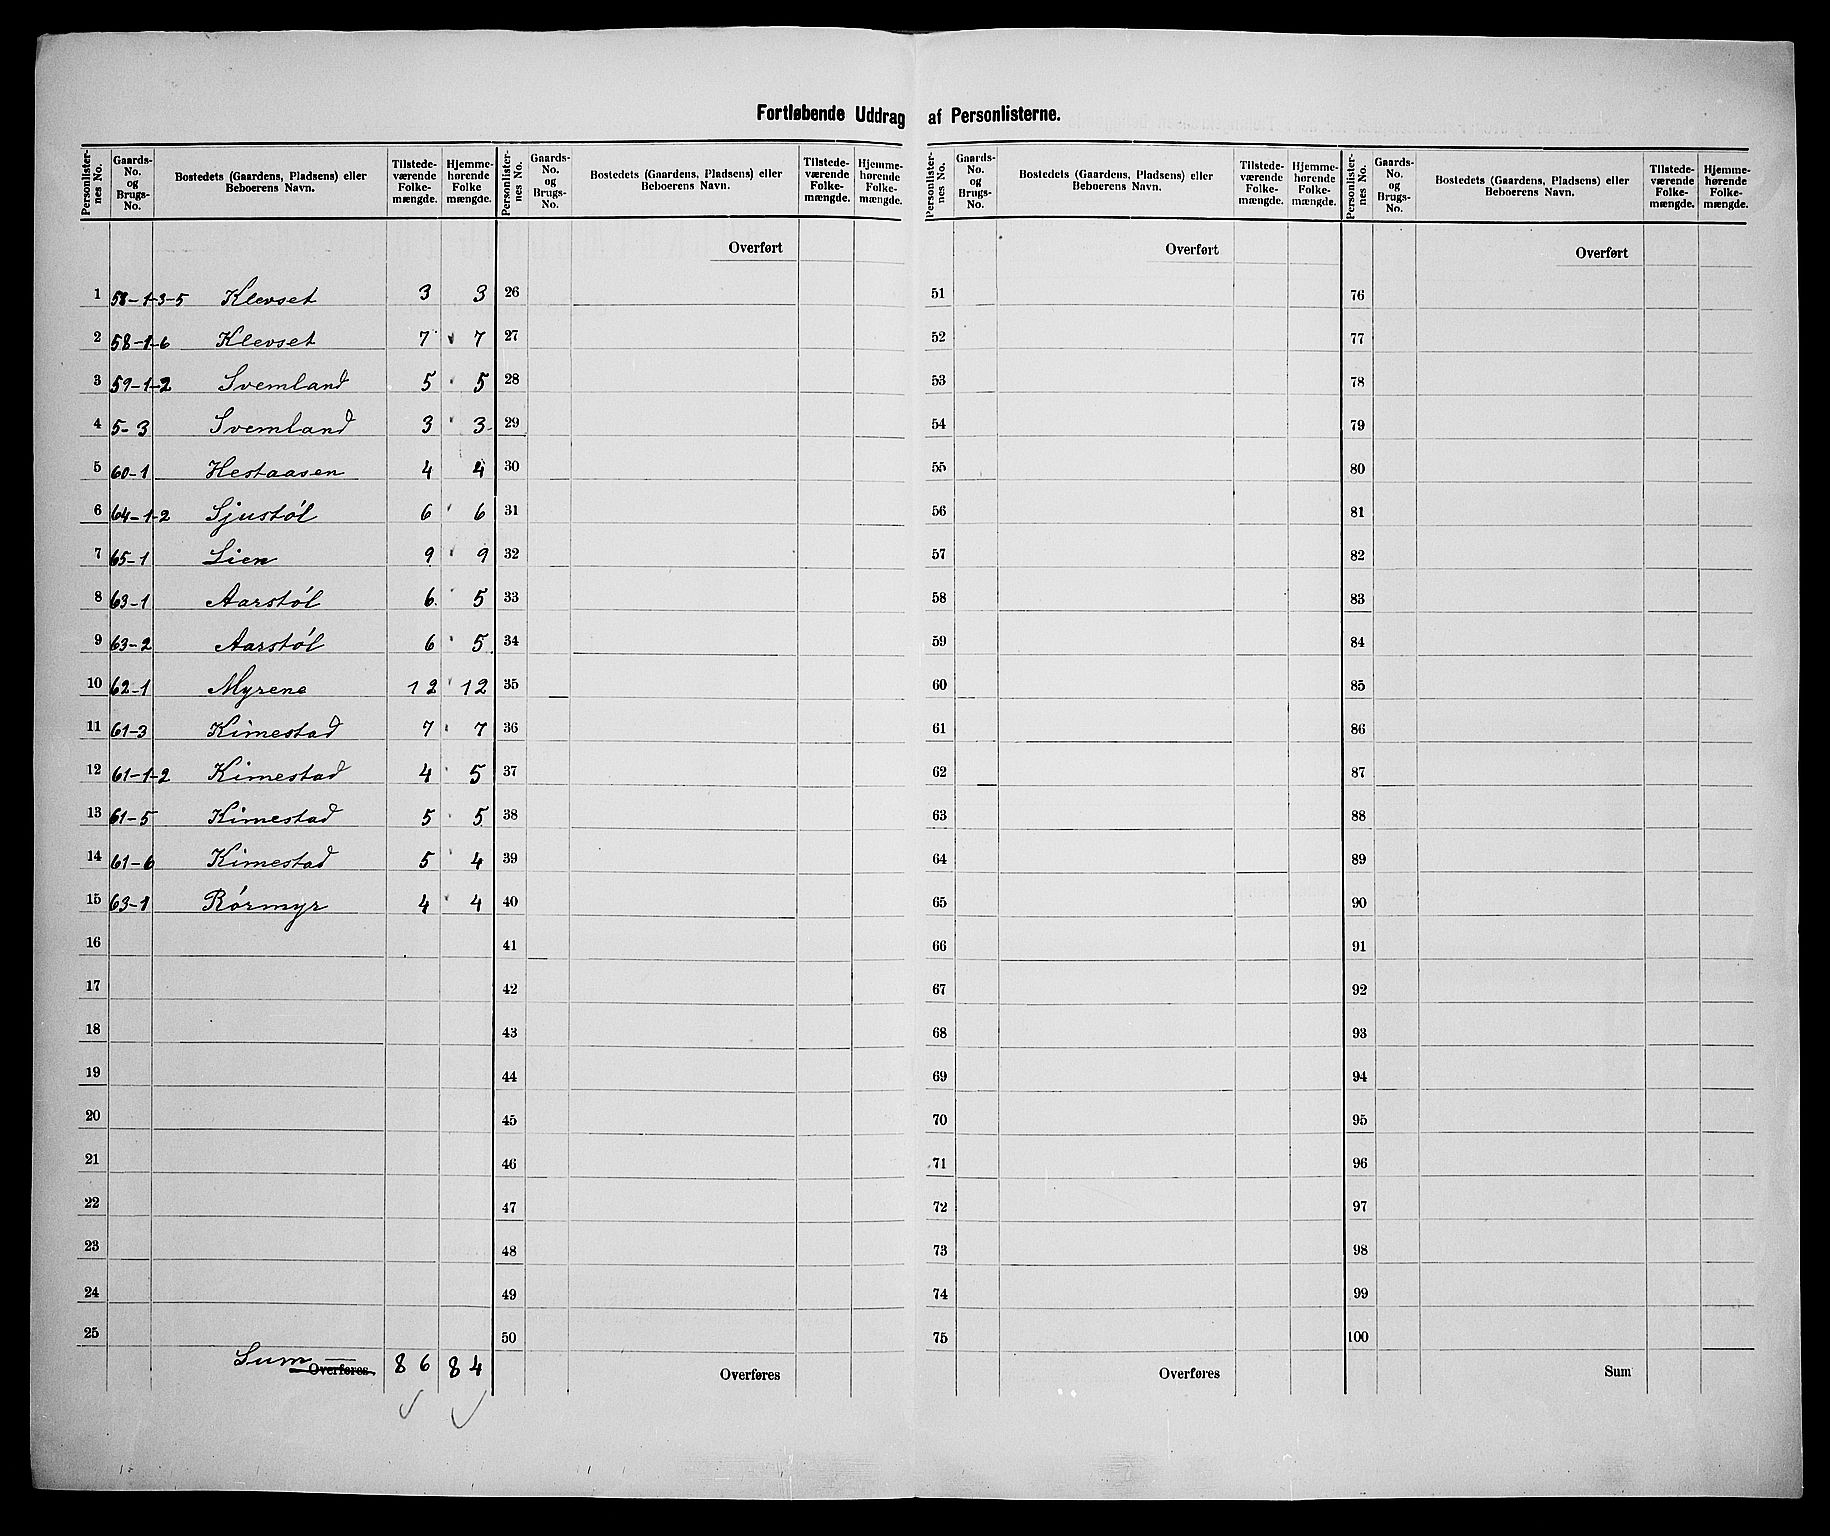 Fortløbende Uddrag af Personlisterne.
Personlister-nes No. | Gaards-No. og Brugs-No. | Bostedets (Gaardens, Pladsens) eller Beboerens Navn. | Tilstede-værende Folke-mængde. | Hjemme-hørende Folke mængde. | Personlister-nes No. | Gaards-No. og Brugs-No. | Bostedets (Gaardens, Pladsens) eller Beboerens Navn. | Tilstede-værende Folke-mængde. | Hjemme-hørende Folke-mængde. | Personlister-nes No. | Gaards-No. og Brugs-No. | Bostedets (Gaardens, Pladsens) eller Beboerens Navn. | Tilstede-værende Folke-mængde. | Hjemme-hørende Folke-mængde. | Personlister-nes No. | Gaards-No. og Brugs-No. | Bostedets (Gaardens, Pladsens) eller Beboerens Navn. | Tilstede-værende Folke-mængde. | Hjemme-hørende Folke-mængde.
Overført Overført Overført
1 58-1-3-5 Klevset 3 3 26 51 76
2 58-1-6 Klevset 7 7 27 52 77
3 59-1-2 Svemland 5 5 28 53 78
4 5-3 Svemland 3 3 29 54 79
5 60-1 Hestaasen 4 4 30 55 80
6 64-1-2 Sjustøl 6 6 31 56 81
7 65-1 Lien 9 9 32 57 82
8 63-1 Aarstøl 6 5 33 58 83
9 63-2 Aarstøl 6 5 34 59 84
10 62-1 Myrene 12 12 35 60 85
11 61-3 Kimestad 7 7 36 61 86
12 61-1-2 Kimestad 4 5 37 62 87
13 61-5 Kimestad 5 5 38 63 88
14 61-6 Kimestad 5 4 39 64 89
15 63-1 Rørmyr 4 4 40 65 90
16 41 66 91
17 42 67 92
18 43 68 93
19 44 69 94
20 45 70 95
21 46 71 96
22 47 72 97
23 48 73 98
24 49 74 99
25 50 75 100
Sum Overføres 86 84 Overføres Overføres Sum